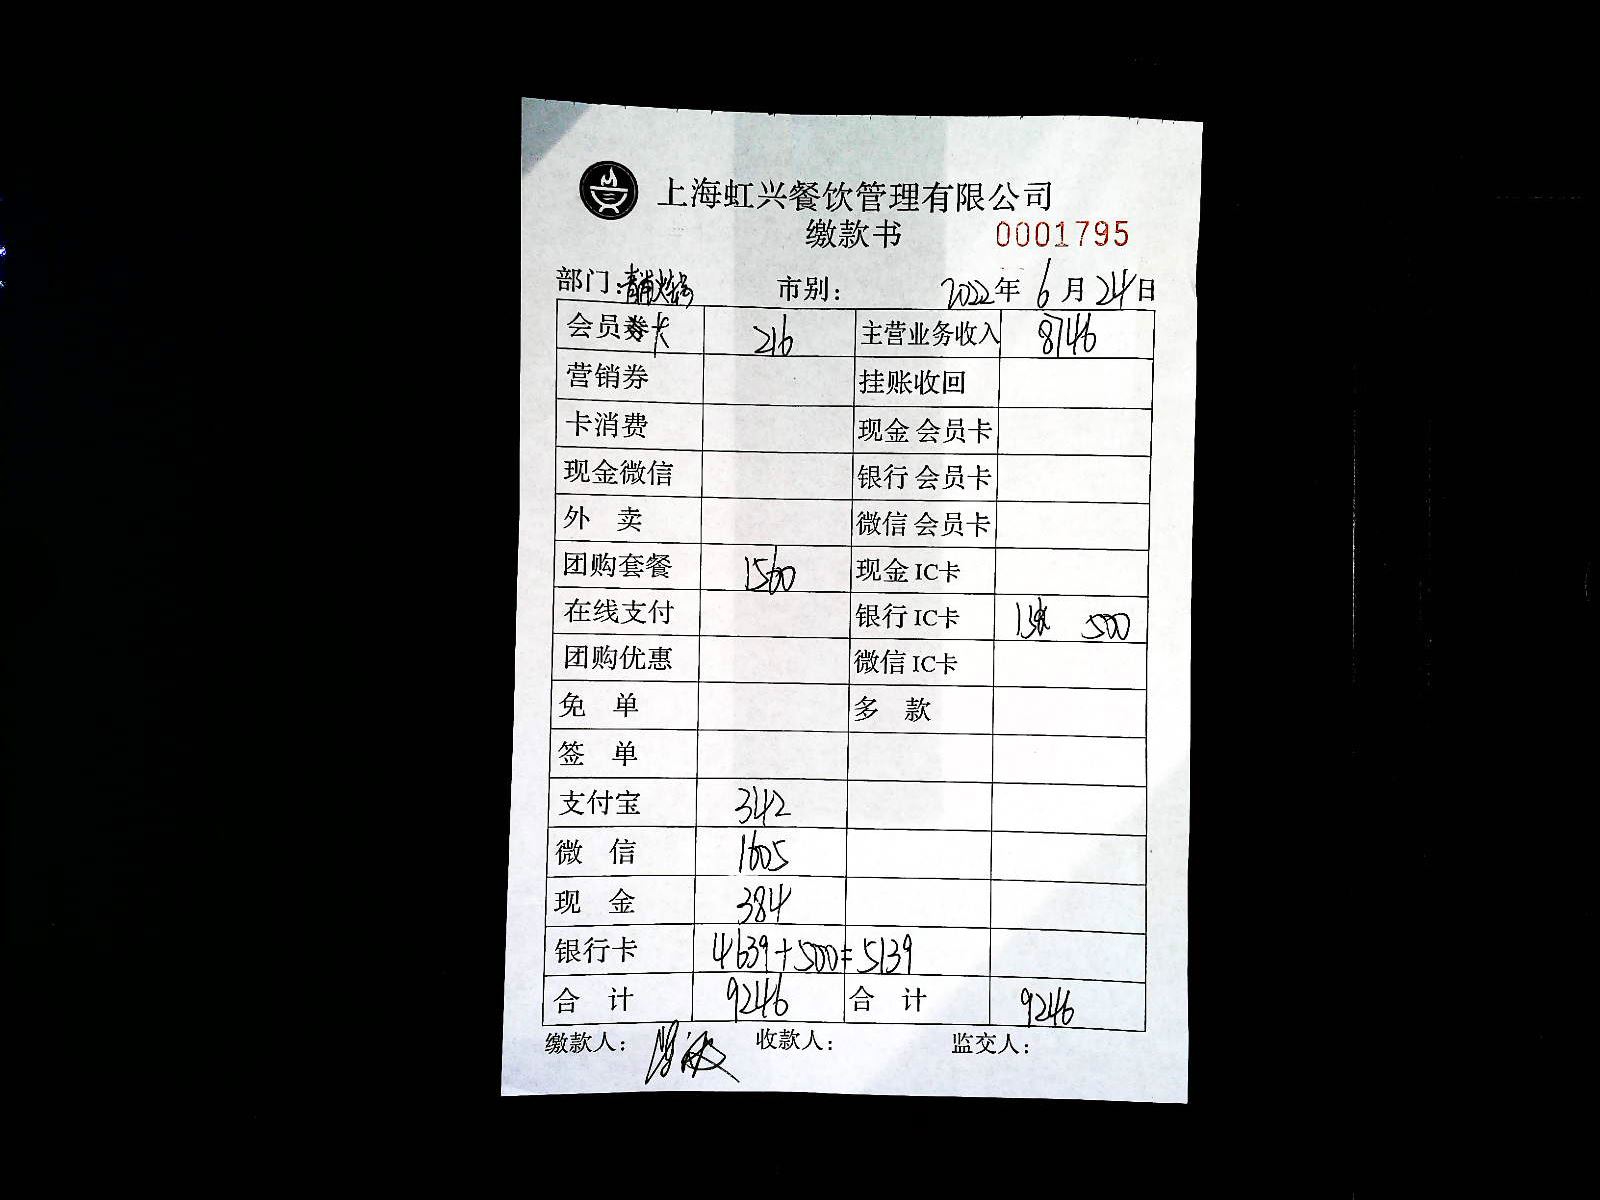 上海虹兴餐饮管理有限公司
缴款书 0001795
部门: 青浦 市别: 2022年6月24日
会员卡 216 主营业务收入 8746
营销券 挂账收回
卡消费 现金 会员卡
现金微信 银行 会员卡
外 卖 微信 会员卡
团购套餐 1560 现金 IC卡
在线支付 银行 IC卡 1张 500
团购优惠 微信 IC卡
免 单 多 款
签 单
支付宝 342
微 信 1605
现 金 384
银行卡 4639+500=5139
合 计 9246 合 计 9246
缴款人: 收款人: 监交人: